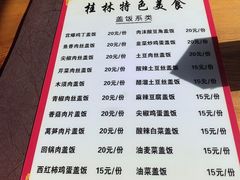 桂林特色美食
盖饭系类
宫爆鸡丁盖饭 20元/份
肉沫酸豆角盖饭 20元/份
鱼香肉丝盖饭 20元/份
韭菜炒鸡蛋盖饭 20元/份
尖椒肉丝盖饭 20元/份
土豆肉丝盖饭 20元/份
芹菜肉丝盖饭 20元/份
酸辣土豆丝盖饭 15元/份
木须肉盖饭 20元/份
醋溜土豆丝盖饭 15元/份
青椒肉丝盖饭 20元/份
麻辣豆腐盖饭 15元/份
香菇肉片盖饭 20元/份
尖椒鸡蛋盖饭 15元/份
莴笋肉片盖饭 20元/份
酸辣白菜盖饭 15元/份
回锅肉盖饭 20元/份
油麦菜盖饭 15元/份
西红柿鸡蛋盖饭 15元/份
油菜盖饭 15元/份